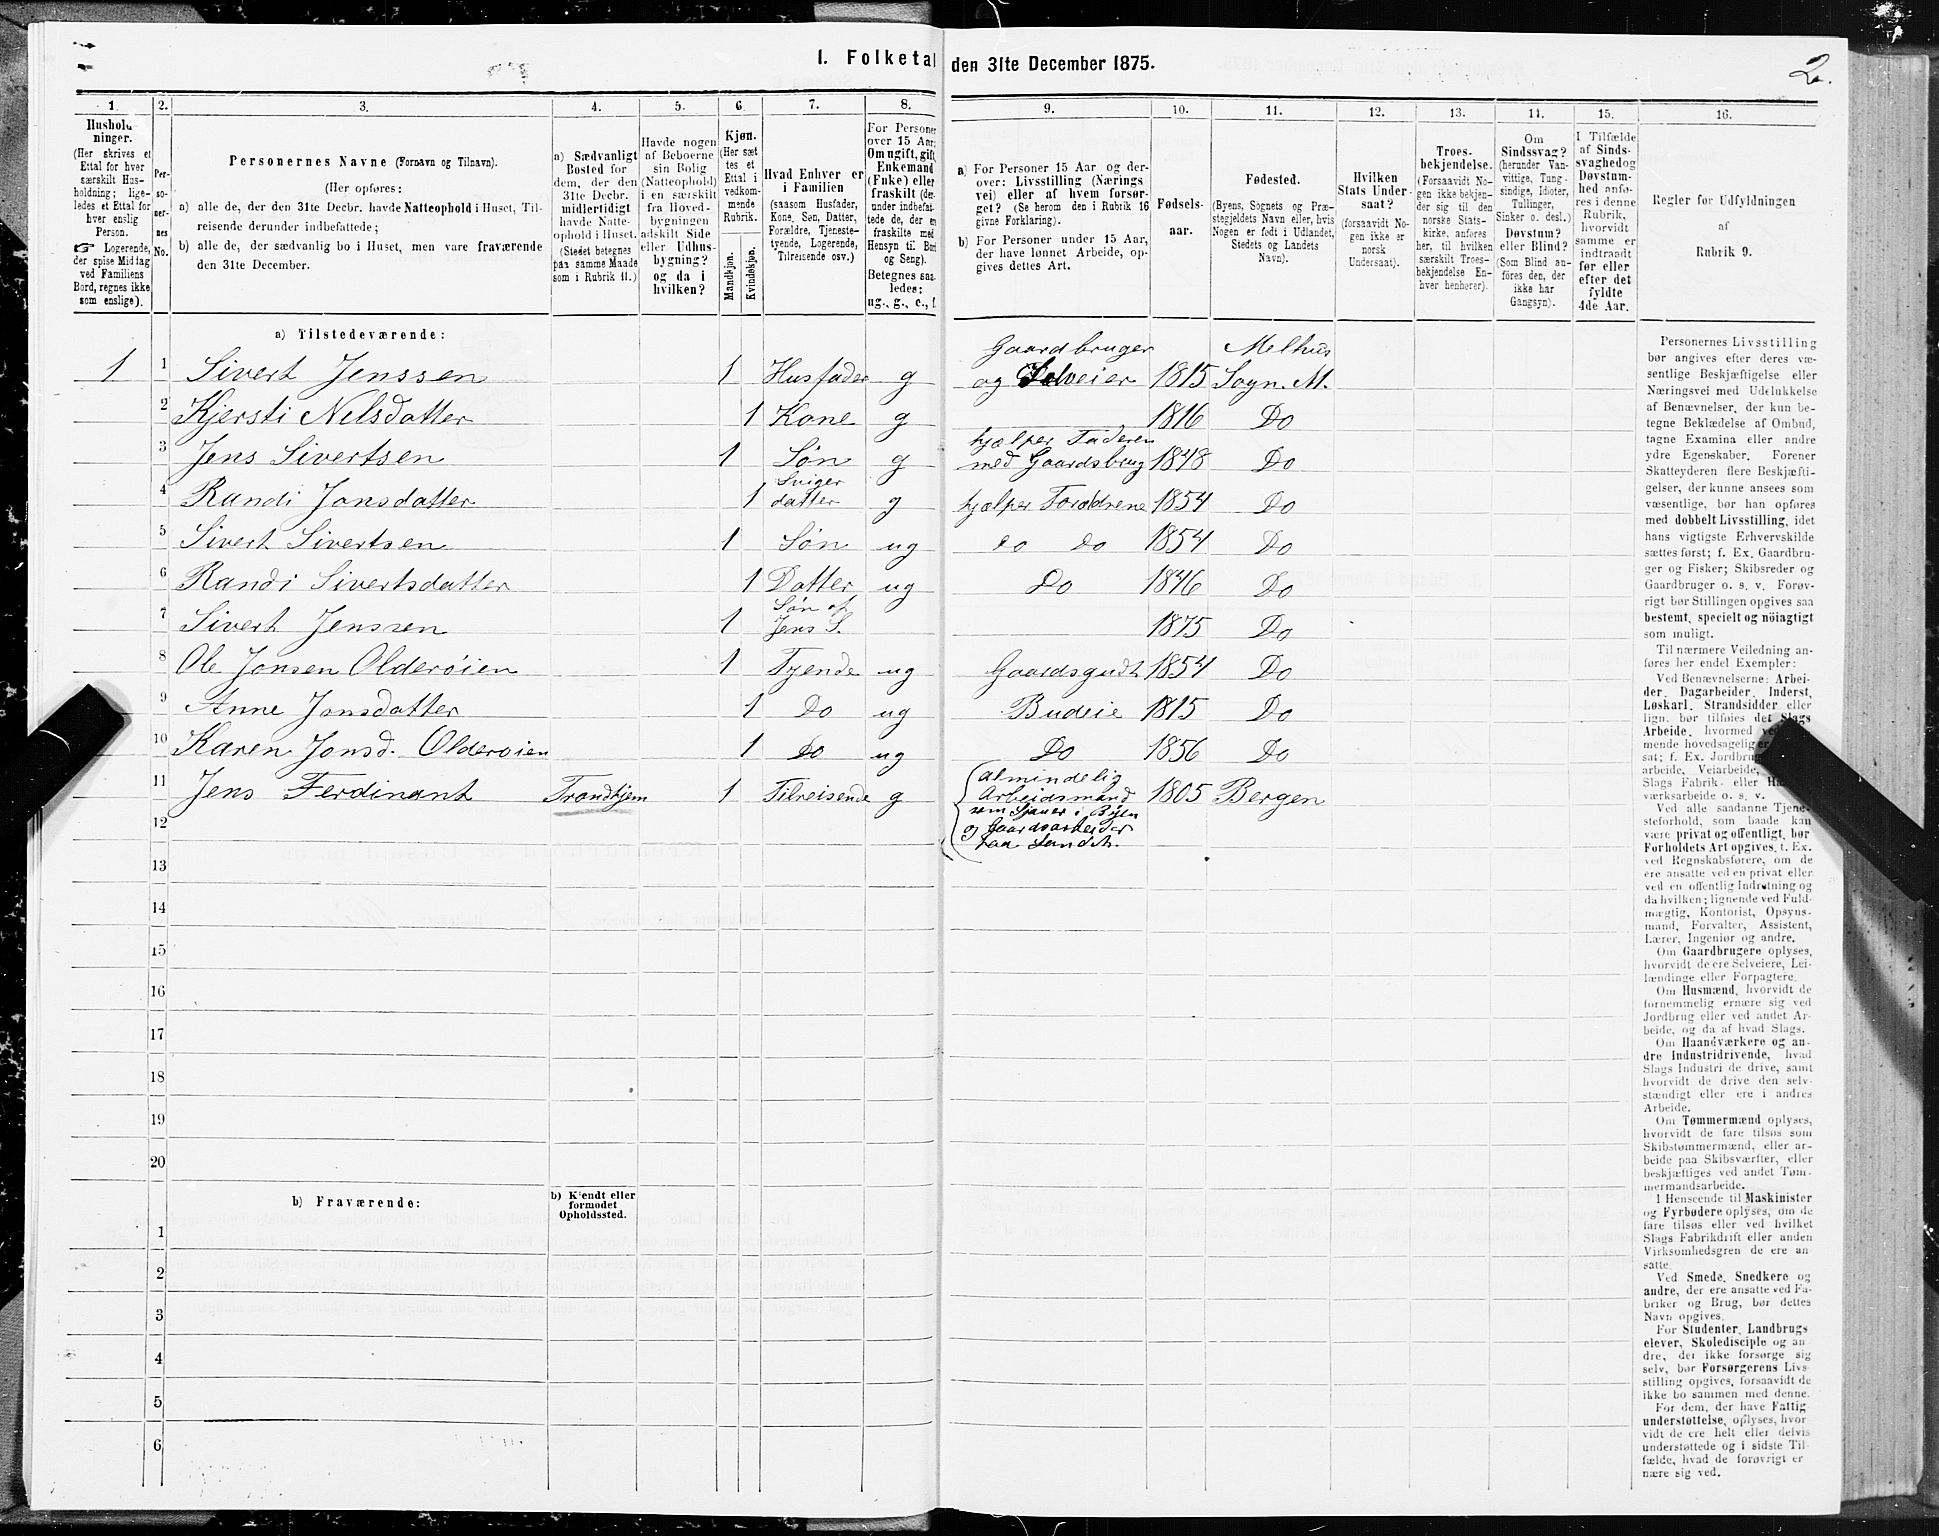 I. Folketal den 31te December 1875.
2.
1. 2. 3. 4. 5. 6. 7. 8. 9. 10. 11. 12. 13. 14. 15. 16.
Hushold-
ninger.
(Her skrives et
Ettal for hver
særskilt Hus-
holdning; lige-
ledes et Ettal for
hver enslig
Person.
☞ Logerende,
der spise Middag
ved Familiens
Bord, regnes ikke
som enslige).
Per-
so-
ner-
nes
No.
Personernes Navne (Fornavn og Tilnavn).
(Her opføres:
a) alle de, der den 31te Decbr. havde Natteophold i Huset, Til-
reisende derunder indbefattede;
b) alle de, der sædvanlig bo i Huset, men vare fraværende
den 31te December.
a) Sædvanligt
Bosted for
dem, der den
31te Decbr.
midlertidigt
havde Natte-
ophold i Huset.
(Stedet betegnes
paa samme Maade
som i Rubrik 11.)
Havde nogen
af Beboerne
sin Bolig
(Natteophold)
i en særskilt
fra Hoved-
bygningen
adskilt Side
eller Udhus-
bygning?
og da i
hvilken?
Kjøn.
(Her sæt-
tes et
Ettal i
vedkom-
mende
Rubrik.
Mandkjøn.
Kvindekjøn.
Hvad Enhver er
i Familien
(saasom Husfader,
Kone, Søn, Datter,
Forældre, Tjeneste-
tyende, Logerende,
Tilreisende osv.)
For Personer
over 15 Aar:
Om ugift, gift,
Enkemand
(Enke) eller
fraskilt (der-
under indbefat-
tede de, der ere
fraskilte med
Hensyn til Bord
og Seng).
Betegnes saa-
ledes:
ug., g., e., f.
a) For Personer 15 Aar og der-
over: Livsstilling (Nærings-
vei) eller af hvem forsør-
get? (Se herom den i Rubrik 16
givne Forklaring).
b) For Personer under 15 Aar,
der have lønnet Arbeide, op-
gives dettes Art.
Fødsels-
aar.
Fødested.
(Byens, Sognets og Præ-
stegjeldets Navn eller, hvis
Nogen er født i Udlandet,
Stedets og Landets
Navn).
Hvilken
Stats Under-
saat?
(forsaavidt No-
gen ikke er
norsk
Undersaat).
Troes-
bekjendelse.
(Forsaavidt No-
gen ikke bekjen-
der sig til den
norske Stats-
kirke, anføres
her, til hvilken
særskilt Troes-
bekjendelse En-
hver henhører).
Om
Sindssvag?
(herunder Van-
vittige, Tung-
sindige, Idioter,
Tullinger,
Sinker o. desl.)
Døvstum?
eller Blind?
(Som Blind an-
føres den, der
ikke har
Gangsyn).
I Tilfælde
af Sinds-
svaghed og
Døvstum-
hed anfø-
res i denne
Rubrik,
hvorvidt
samme er
indtraadt
før eller
efter det
fyldte
4de Aar.
Regler for Udfyldningen
af
Rubrik 9.
a) Tilstedeværende:
1 1 Sivert Jenssen 1 Husfader g Gaardbruger og Selveier 1815 Melhus Sogn. M.
2 Kjersti Nelsdatter 1 Kone g 1816 Do
3 Jens Sivertsen 1 Søn g hjælper Faderen med Gaardsbrug 1848 Do
4 Randi Jonsdatter 1 Sviger datter g hjælper Forældrene 1854 Do
5 Sivert Sivertsen 1 Søn ug do do 1854 Do
6 Randi Sivertsdatter 1 Datter ug Do 1846 Do
7 Sivert Jenssen 1 Søn af Jens S. 1875 Do
8 Ole Jonsen Olderøien 1 Tyende ug Gaardsgudt 1854 Do
9 Anne Jonsdatter 1 Do ug Budeie 1815 Do
10 Karen Jonsd. Olderøien 1 Do ug Do 1856 Do
11 Jens Ferdinant Trondhjem 1 Tilreisende g almindelig Arbeidsmand som Sjauer i Byen og Gaardsarbeider paa Landet. 1805 Bergen
12
13
14
15
16
17
18
19
20
b) Fraværende:
b) Kjendt eller
formodet
Opholdssted.
1
2
3
4
5
6
Personernes Livsstilling
bør angives efter deres væ-
sentlige Beskjæftigelse eller
Næringsvei med Udelukkelse
af Benævnelser, der kun be-
tegne Beklædelse af Ombud,
tagne Examina eller andre
ydre Egenskaber. Forener
Skatteyderen flere Beskjæfti-
gelser, der kunne ansees som
væsentlige, bør han opføres
med dobbelt Livsstilling, idet
hans vigtigste Erhvervskilde
sættes først; f. Ex. Gaardbru-
ger og Fisker; Skibsreder og
Gaardbruger o. s. v. Forøv-
rigt bør Stillingen opgives saa
bestemt, specielt og nöiagtigt
som muligt.
Til nærmere Veiledning an-
føres her endel Exempler:
Ved Benævnelserne: Arbei-
der, Dagarbeider, Inderst,
Løskarl, Strandsidder eller
lign. bør tilføies det Slags
Arbeide, hvormed
mende hovedsagelig er
sat; f. Ex. Jordbrug
arbeide, Veiarbeide,
Slags Fabrik- eller
værksarbeide o. s. v.
Ved alle saadanne Tjene-
steforhold, som baade kan
være privat og offentligt, bør
Forholdets Art opgives, t. Ex.
ved Regnskabsførere, om de
ere ansatte ved en privat eller
ved en offentlig Indretning og
da hvilken; lignende ved Fuld-
mægtig, Kontorist, Opsyns-
mand, Forvalter, Assistent,
Lærer, Ingeniør og andre.
Om Gaardbrugere oplyses,
hvorvidt de ere Selveiere, Lei-
lændinge eller Forpagtere.
Om Husmænd, hvorvidt de
fornemmelig ernære sig ved
Jordbrug eller ved andet Ar-
beide, og da af hvad Slags.
Om Haandværkere og an-
dre Industridrivende, hvad
Slags Industri de drive, samt
hvorvidt de drive den selv-
stændigt eller ere i andres
Arbeide.
Om Tømmermænd oplyses,
hvorvidt de fare tilsøs som
Skibstømmermænd, eller ar-
beide paa Skibsværfter, eller
beskjæftiges ved andet Tøm-
mermandsarbeide.
I Henseende til Maskinister
og Fyrbødere oplyses, om de
fare tilsøs eller ved hvilket
Slags Fabrikdrift eller anden
Virksomhedsgren de ere an-
satte.
Ved Smede, Snedkere og
andre, der ere ansatte ved Fa-
briker og Brug, bør dettes
Navn opgives.
For Studenter, Landbrugs-
elever, Skoledisciple og an-
dre, der ikke forsørge sig
selv, bør Forsørgerens Livs-
stilling opgives, forsaavidt de
ikke bo sammen med denne.
For dem, der have Fattig-
understøttelse, oplyses, hvor-
vidt de ere helt eller delvis
understøttede og i sidste Til-
fælde, hvad de forøvrigt er-
nære sig ved.